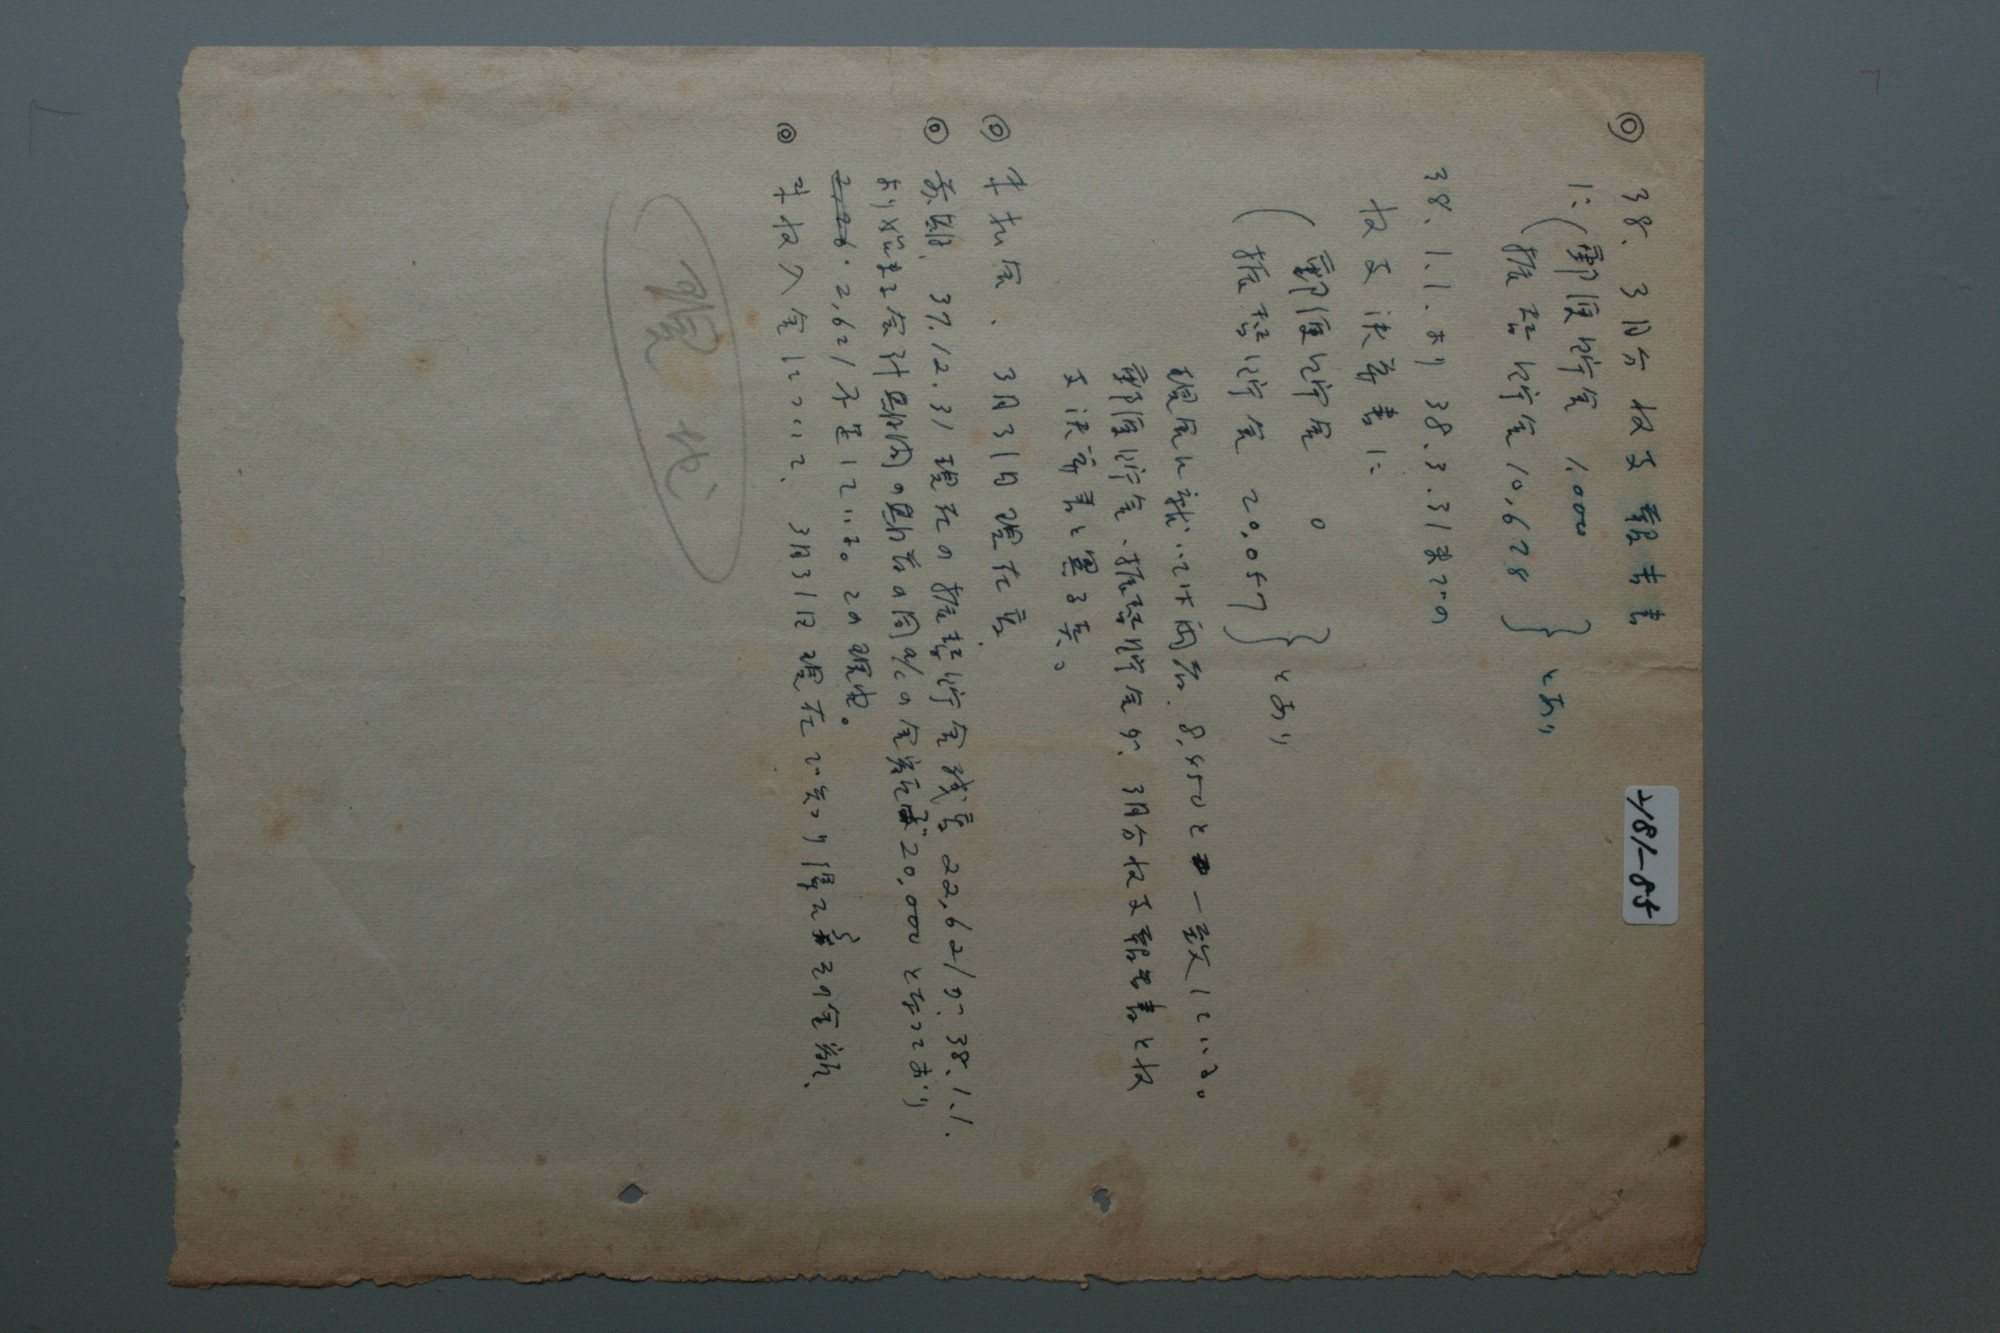 2181-85
◎ 38. 3月分收支報告書
に(郵便貯金 1.000
振替貯金 10,678} とあり
38. 1. 1. より 38. 3. 31 までの
收支決算書に
(郵便貯金 0
振替貯金 20.057)} とあり
現金に就いては両者. 8,450と一致している。
郵便貯金、振替貯金が、3月分收支報告書と收
支決算書と異る点。
◎ 未払金、3月31日現在高
◎ 前期. 37. 12. 31 現在の振替貯金残高 22,621が. 38. 1. 1.
より始まる会計期間の期首の同a/cの金額が20,000となっており
2,621不足している。この理由。
◎ 未收入金について、3月31日現在で知り得るその金額、